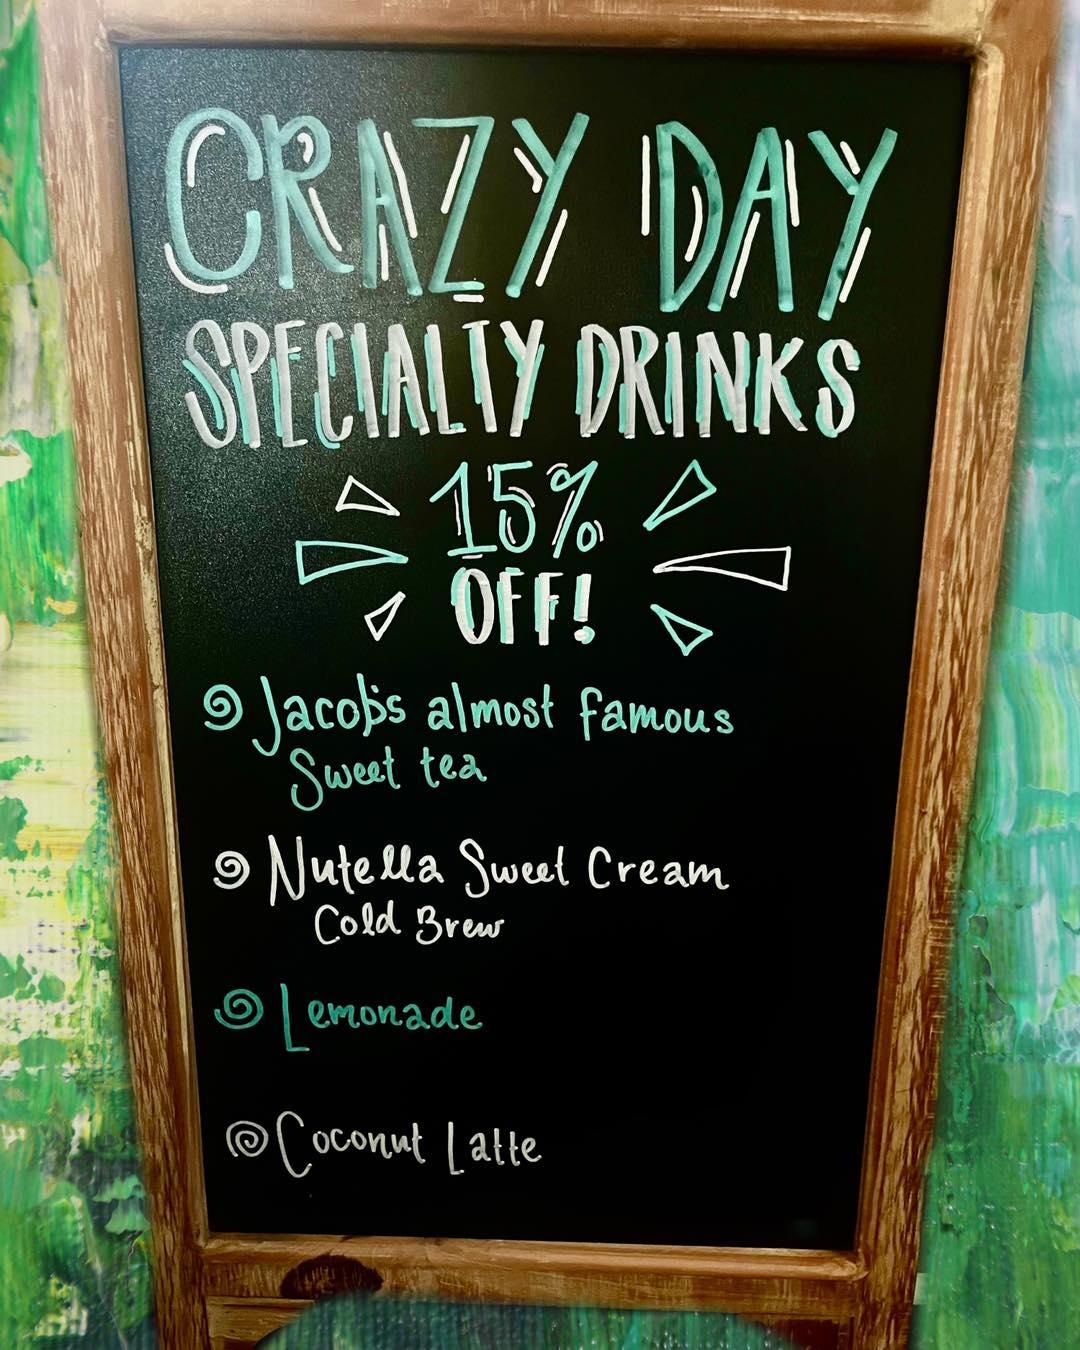 CRAZY DAY
SPECIALTY DRINKS
15%
OFF!
Jacob's almost famous
Sweet tea
Nutella Sweet Cream
Cold Brew
Lemonade
Coconut Latte